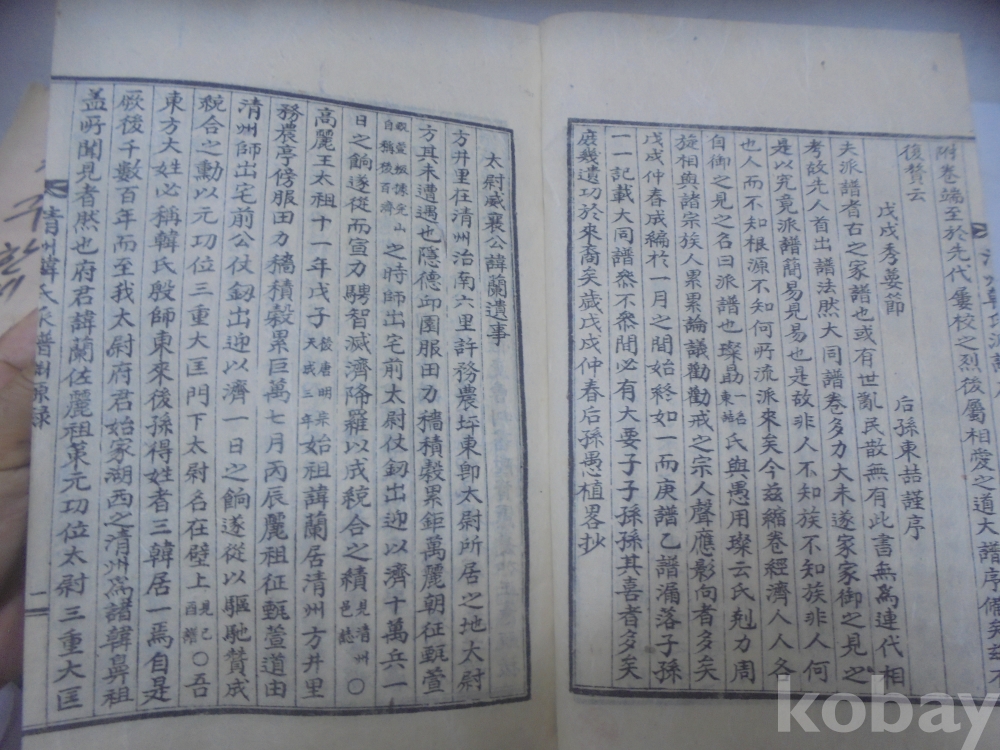 附卷端至於先代屢校之烈後屬相愛之道大譜序備矣玆不
復贅云
戊戌秀葽節
后孫東喆謹序
夫派譜者古之家譜也或有世亂民散無有此書無爲連代相
考故先人首出譜法然大同譜卷多力大未遂家家御之見之
是以究竟派譜簡易見易也是故非人不知族不知族非人何
也人而不知根源不知何所流派來矣今玆縮卷經濟人人各
自御之見之名曰派譜也璨勗一名東喆氏與愚用璨云氏剋力周
旋相與諸宗族人累累論議勸勸戒之宗人聲應影向者多矣
戊戌仲春成編於一月之間始終如一而庚譜乙譜漏落子孫
一一記載大同譜叅不叅間必有大要子子孫孫其喜者多矣
庶幾遺功於來裔矣歲戊戌仲春后孫愚植畧抄
太尉威襄公諱蘭遺事
方井里在清州治南六里許務農坪東卽太尉所居之地太尉
方其未遭遇也隱德邱園服田力穡積穀累鉅萬麗朝征甄萱
之時師出宅前太尉仗釼出迎以濟十萬兵一
日之餉遂從而宣力騁智滅濟降羅以成統合之績見清州邑誌〇
高麗王太祖十一年戊子後唐明宗天成三年始祖諱蘭居清州方井里
務農亭傍服田力穡積穀累巨萬七月丙辰麗祖征甄萱道由
清州師出宅前公仗釼出迎以濟一日之餉遂從以驅馳贊成
統合之勳以元功位三重大匡門下太尉名在壁上見己酉譜〇吾
東方大姓必稱韓氏殷師東來後孫得姓者三韓居一焉自是
厥後千數百年而至我太尉府君始家湖西之清州爲譜韓鼻祖
盖所聞見者然也府君諱蘭佐麗祖策元功位太尉三重大匡
清州韓氏派譜
一
kobay